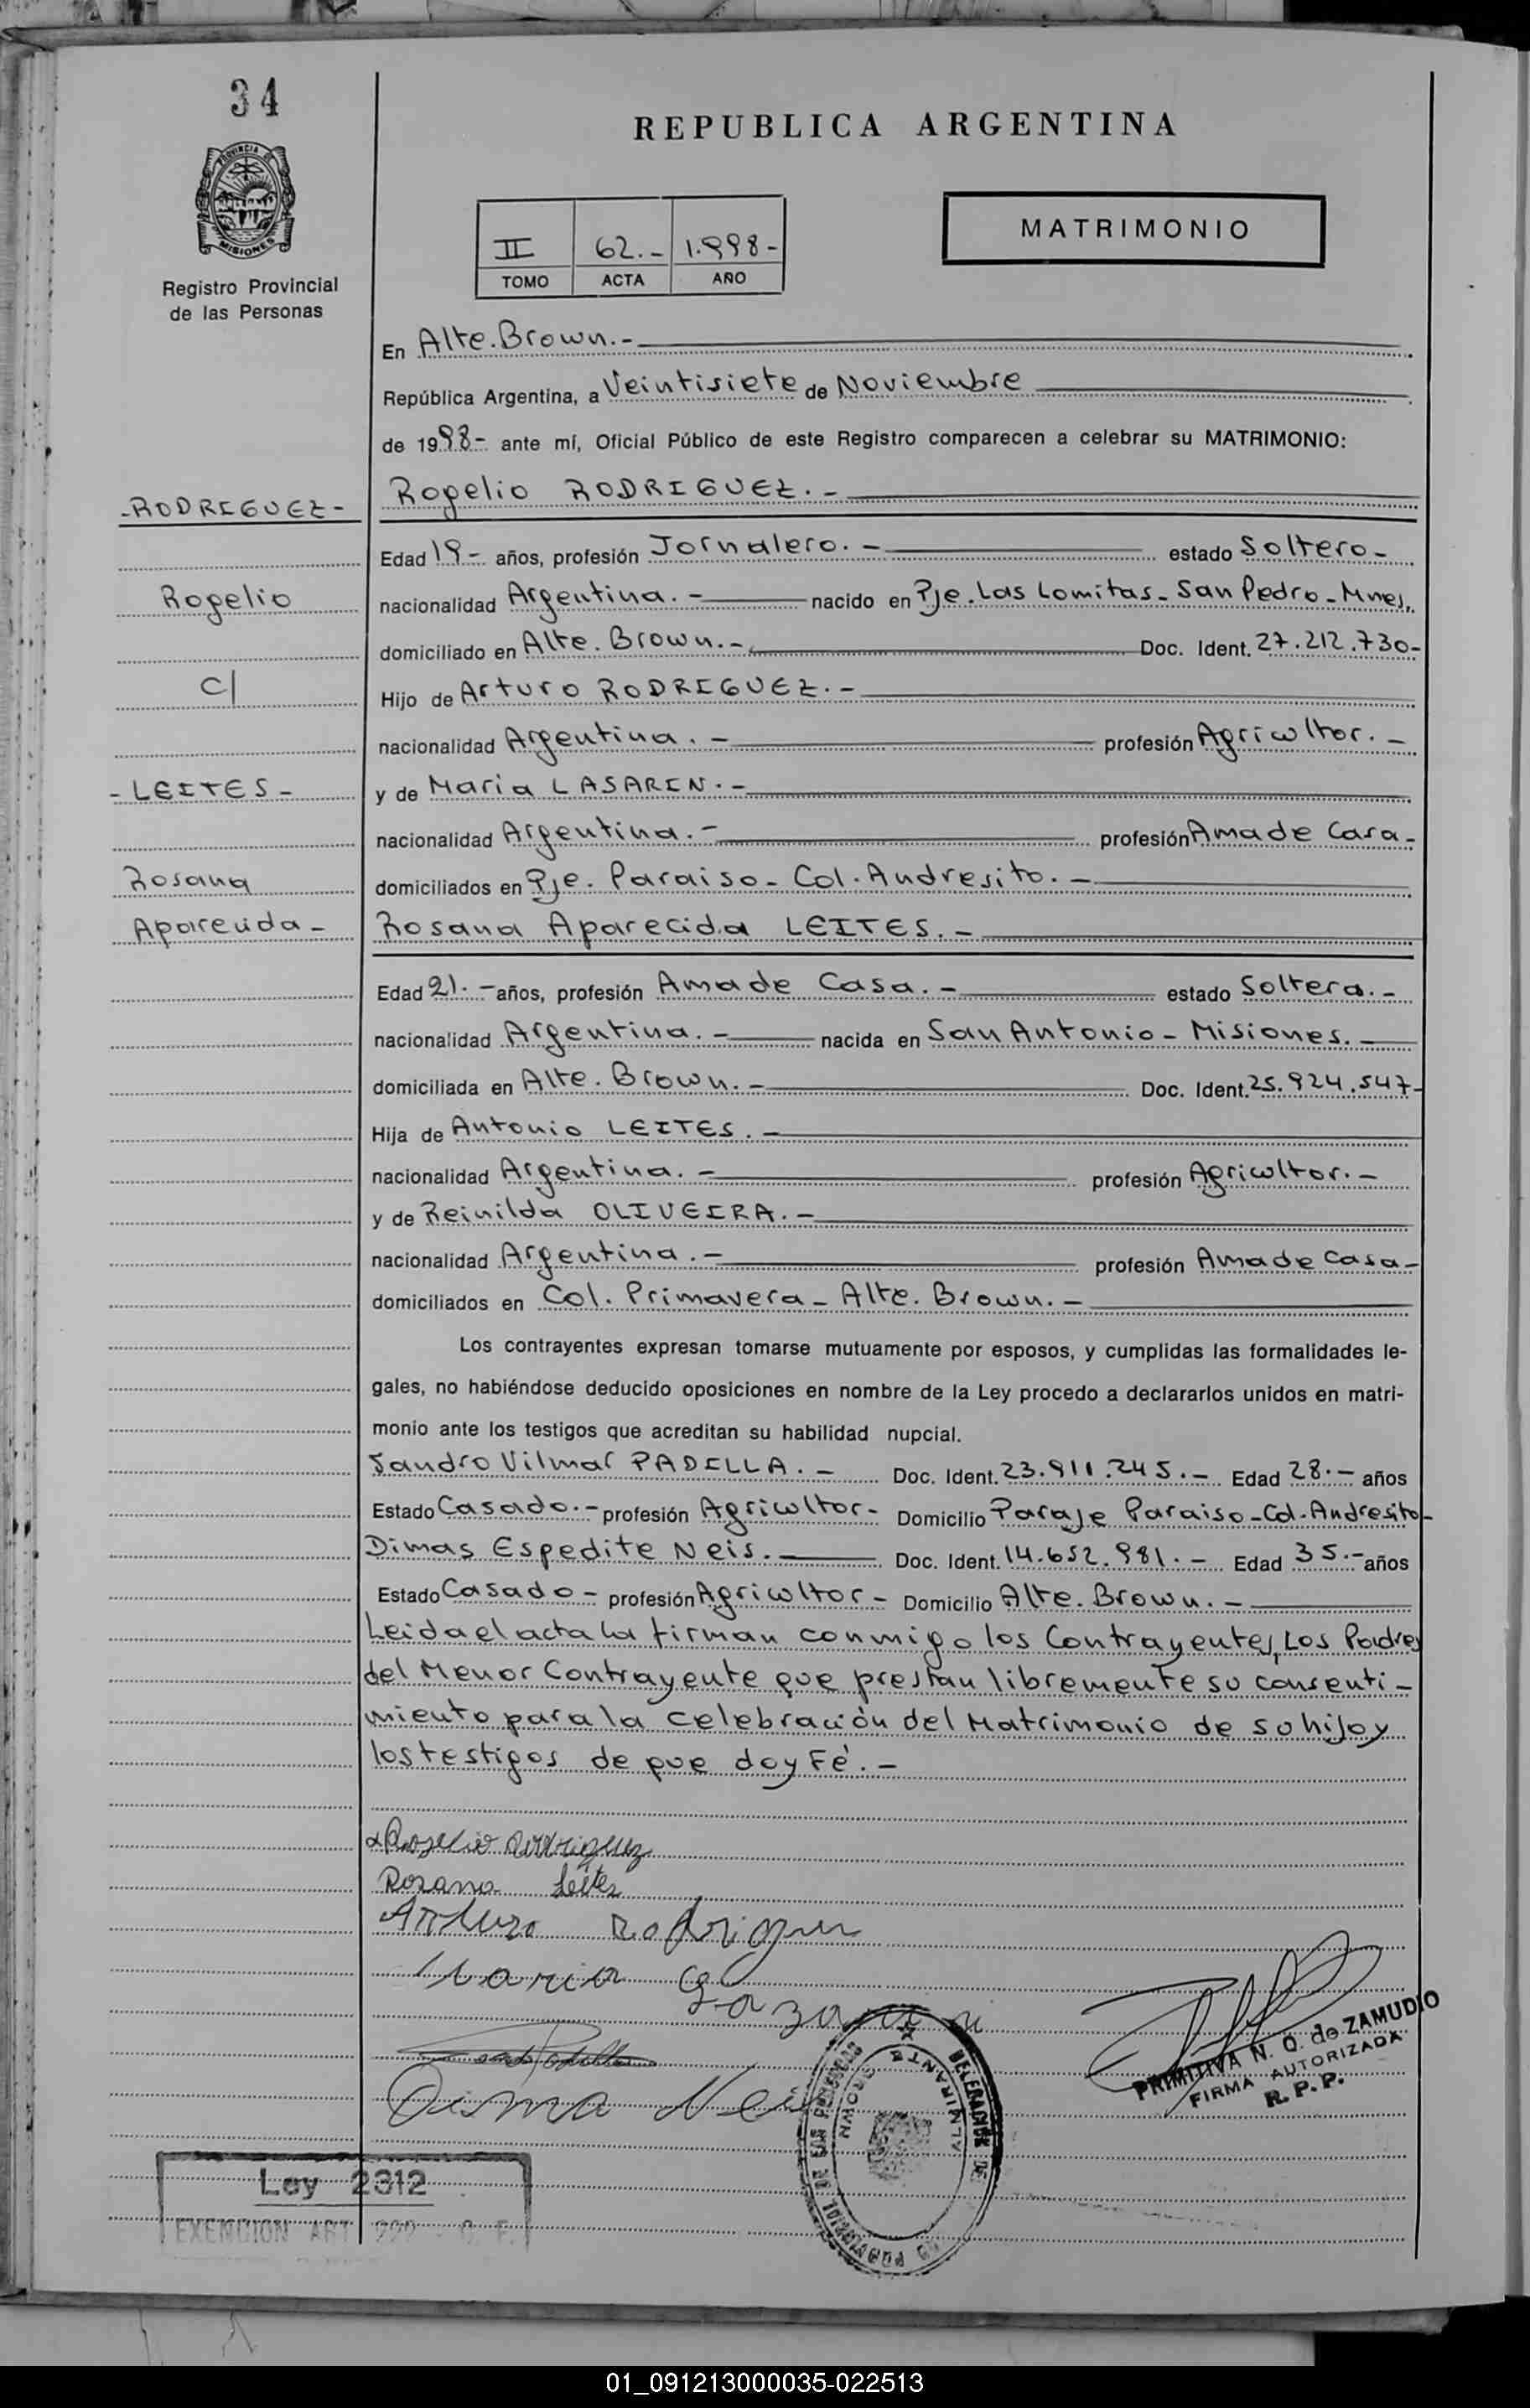 34
REPUBLICA ARGENTINA
PROVINCIA DE
MISIONES
Registro Provincial
de las Personas
MATRIMONIO
II 62.- 1.998-
TOMO ACTA AÑO
En Alte. Brown.-
República Argentina, a Veintisiete de Noviembre
de 1998- ante mí, Oficial Público de este Registro comparecen a celebrar su MATRIMONIO:
-RODRIGUEZ-
Rogelio RODRIGUEZ.-
Edad 19- años, profesión Jornalero.- estado Soltero-
Rogelio
nacionalidad Argentina.- nacido en Pje. Las Lomitas- San Pedro- Mnes.
domiciliado en Alte. Brown.- Doc. Ident. 27.212.730-
C/
Hijo de Arturo RODRIGUEZ.-
nacionalidad Argentina.- profesión Agricultor.-
-LEITES-
y de Maria LASAREN.-
nacionalidad Argentina.- profesión Ama de Casa-
Rosana
domiciliados en Pje. Paraiso- Col. Andresito.-
Aparecida-
Rosana Aparecida LEITES.-
Edad 21.- años, profesión Ama de Casa.- estado Soltera.-
nacionalidad Argentina.- nacida en San Antonio- Misiones.
domiciliada en Alte. Brown.- Doc. Ident. 25.924.547-
Hija de Antonio LEITES.-
nacionalidad Argentina.- profesión Agricultor.-
y de Reinilda OLIVEIRA.-
nacionalidad Argentina.- profesión Ama de Casa-
domiciliados en Col. Primavera- Alte. Brown.-
Los contrayentes expresan tomarse mutuamente por esposos, y cumplidas las formalidades le-
gales, no habiéndose deducido oposiciones en nombre de la Ley procedo a declararlos unidos en matri-
monio ante los testigos que acreditan su habilidad nupcial.
Sandro Vilmar PADILLA.- Doc. Ident. 23.911.245.- Edad 28.- años
Estado Casado.- profesión Agricultor- Domicilio Paraje Paraiso- Col. Andresito-
Dimas Espedite Neis.- Doc. Ident. 14.652.981.- Edad 35.- años
Estado Casado- profesión Agricultor- Domicilio Alte. Brown.-
Leida el acta la firman conmigo los Contrayentes, Los Padres
del Menor Contrayente que prestan libremente su consenti-
miento para la celebración del Matrimonio de su hijo y
los testigos de que doy Fé.-
Rogelio Rodriguez
Rosana Leites
Arturo Rodriguez
Maria
Dima Neis
PRIMITIVA N. Q. de ZAMUDIO
FIRMA AUTORIZADA
R. P. P.
DELEGACION DE
ALMIRANTE BROWN
Ley 2312
EXENCION ART
01_091213000035-022513